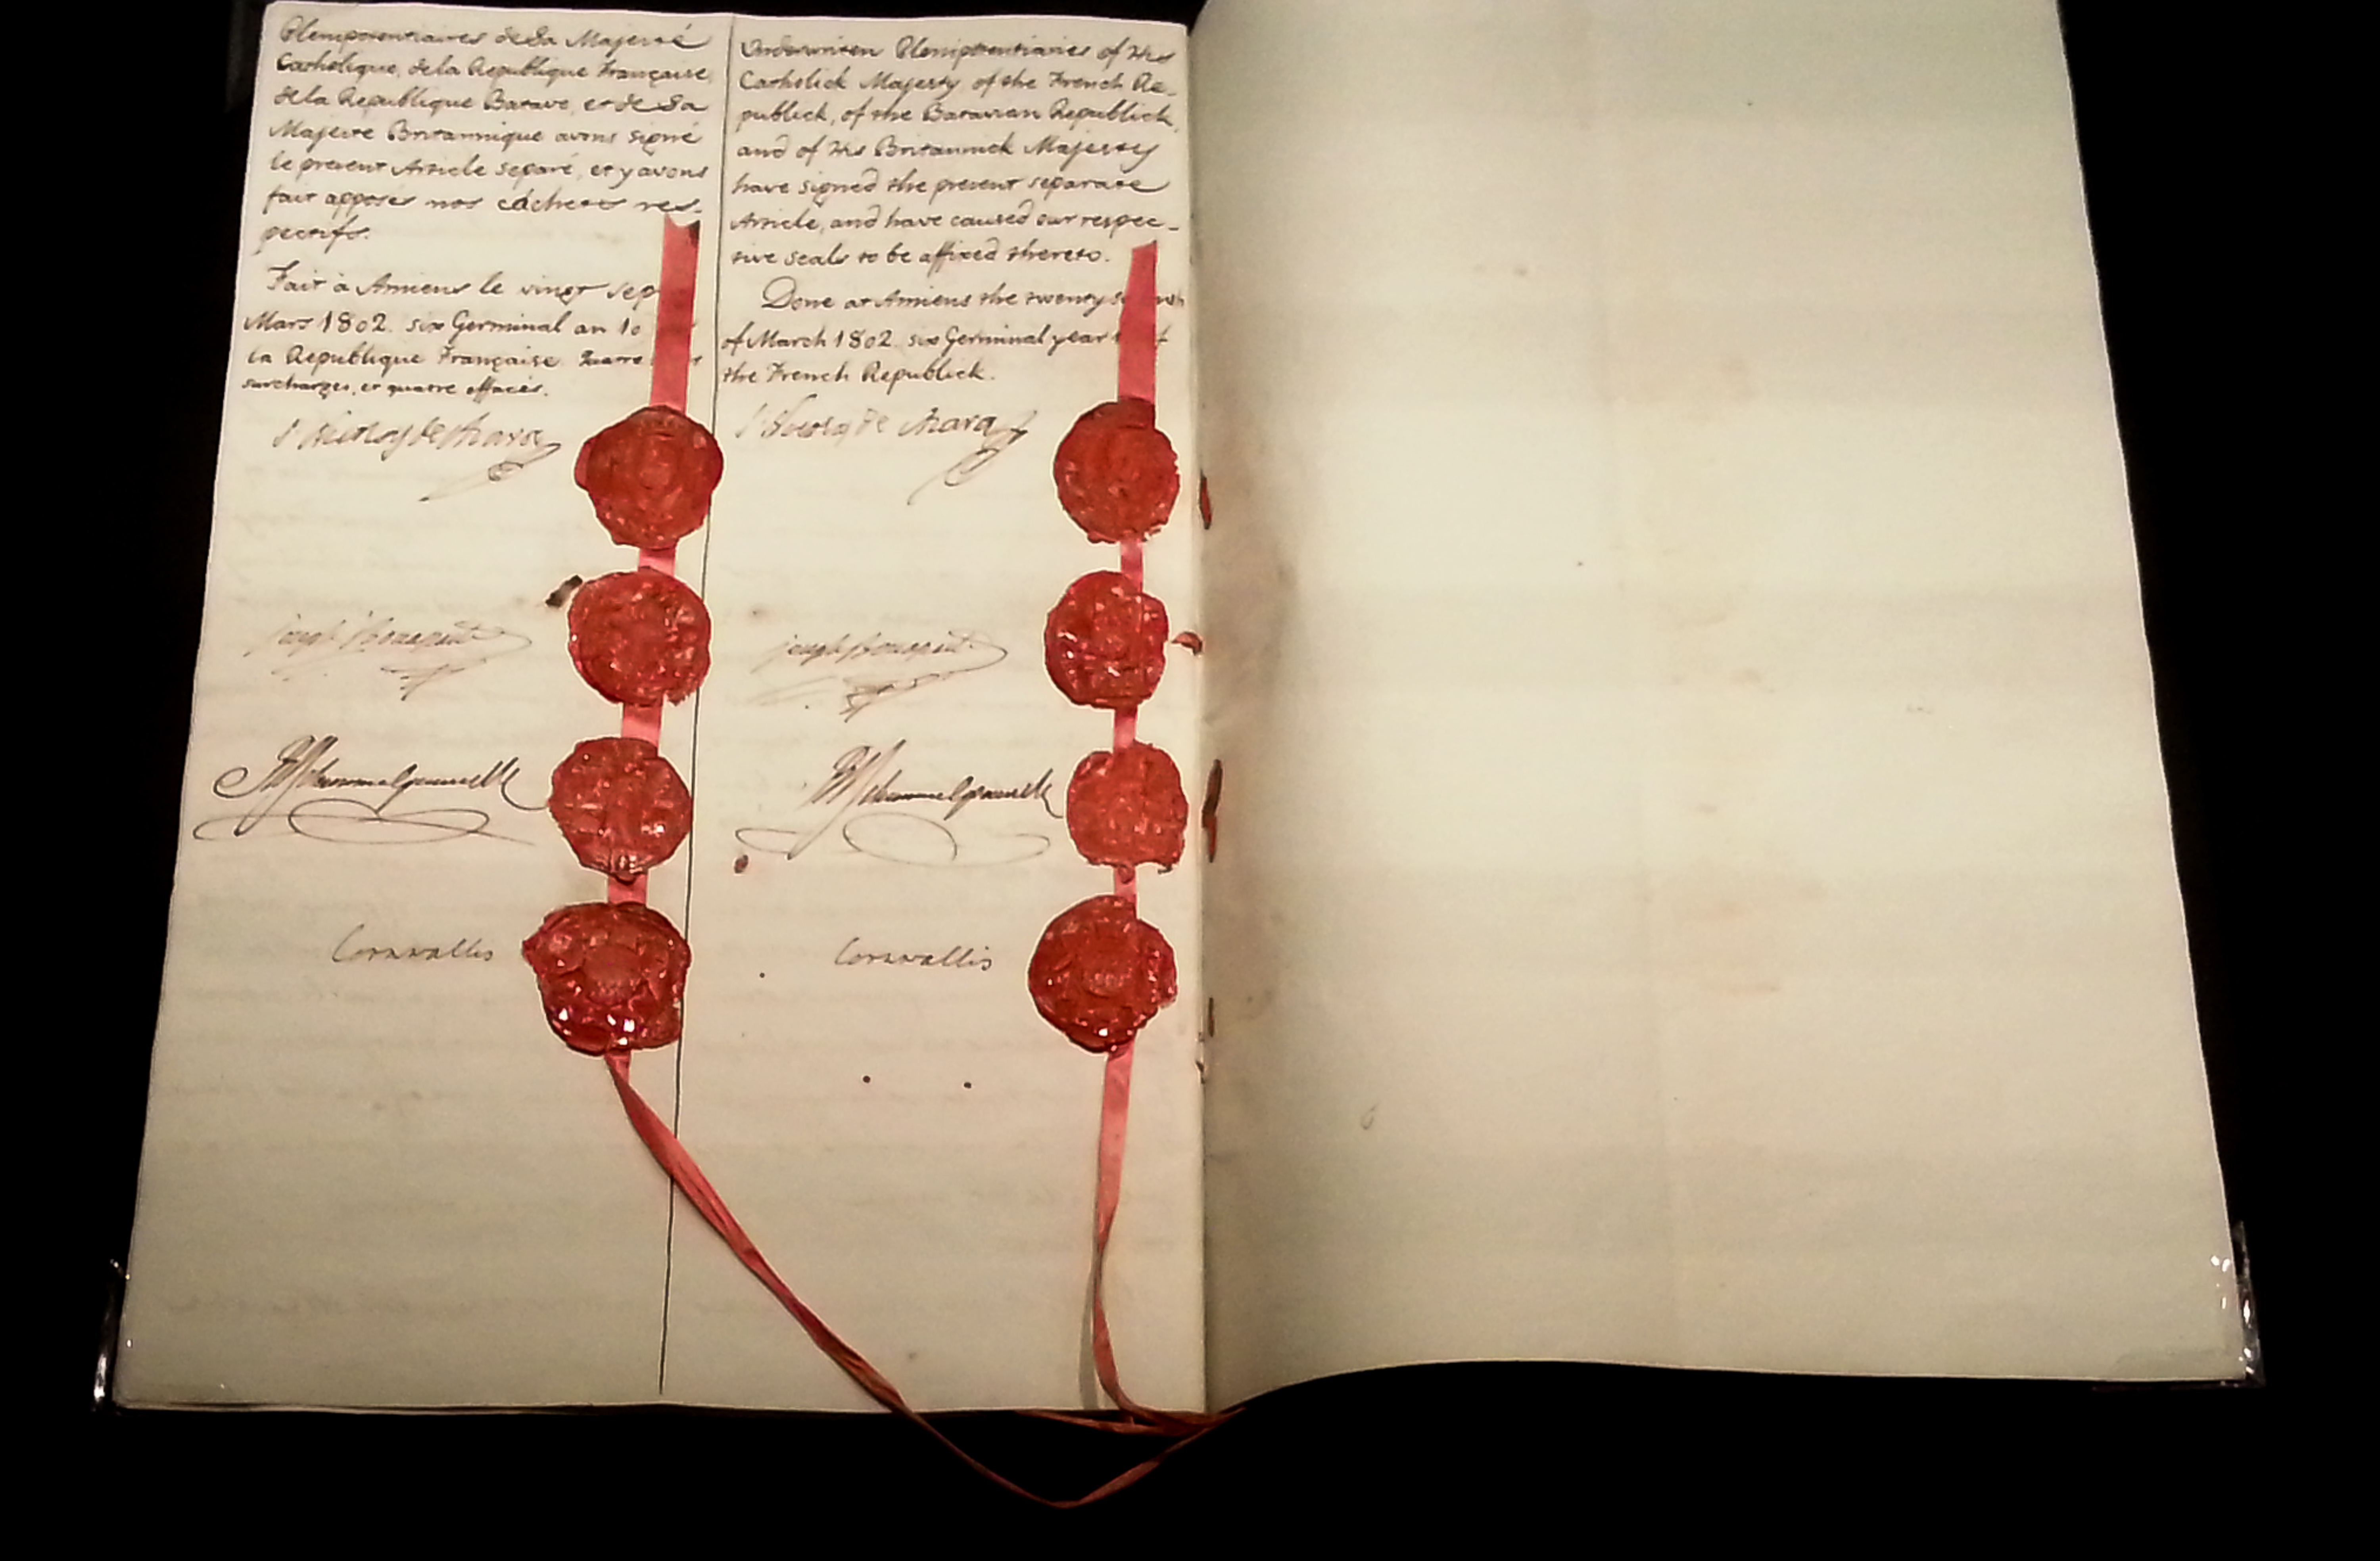 Plenipotentiaires de Sa Majesté
Catholique, de la Republique Française,
de la Republique Batave, et de Sa
Majesté Britannique avons signé
le present Article separé, et y avons
fait apposer nos cachets res-
pectifs.
Fait à Amiens le vingt sep
Mars 1802. six Germinal an 10
la Republique Française. Quatre
surchargés, et quatre effacés.
Joseph Bonaparte
Cornwallis
Underwriten Plenipotentiaries of His
Catholick Majesty of the French Re-
publick, of the Batavian Republick,
and of His Britannick Majesty
have signed the present separate
Article, and have caused our respec-
tive seals to be affixed thereto.
Done at Amiens the twenty s
of March 1802. six Germinal year
the French Republick.
Joseph Bonaparte
Cornwallis